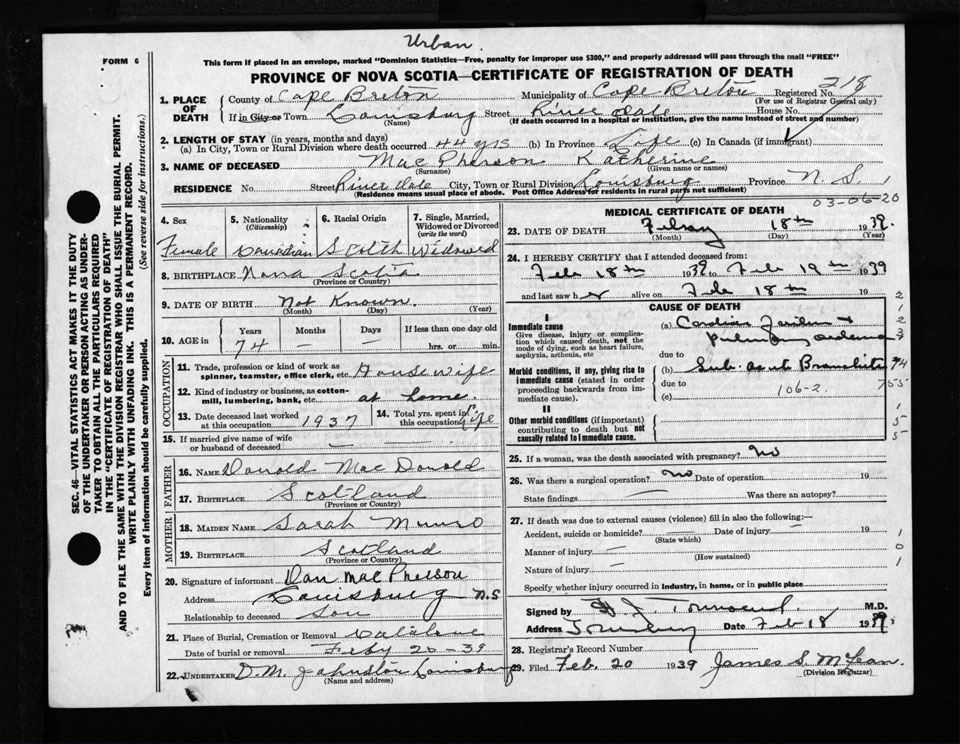 Urban.
FORM 6
This form if placed in an envelope, marked "Dominion Statistics—Free, penalty for improper use $300," and properly addressed will pass through the mail "FREE"
PROVINCE OF NOVA SCOTIA—CERTIFICATE OF REGISTRATION OF DEATH
SEC. 46—VITAL STATISTICS ACT MAKES IT THE DUTY
OF THE UNDERTAKER OR PERSON ACTING AS UNDER-
TAKER TO OBTAIN ALL THE PARTICULARS REQUIRED
IN THE "CERTIFICATE OF REGISTRATION OF DEATH"
AND TO FILE THE SAME WITH THE DIVISION REGISTRAR WHO SHALL ISSUE THE BURIAL PERMIT.
WRITE PLAINLY WITH UNFADING INK. THIS IS A PERMANENT RECORD.
Every item of information should be carefully supplied. (See reverse side for instructions.)
1. PLACE OF DEATH
County of Cape Breton Municipality of Cape Breton Registered No. 218
(For use of Registrar General only)
If in City or Town Louisburg Street River dale House No.
(Name) (If death occurred in a hospital or institution, give the name instead of street and number)
2. LENGTH OF STAY (in years, months and days)
(a) In City, Town or Rural Division where death occurred 44 yrs (b) In Province Life (c) In Canada (if immigrant)
3. NAME OF DECEASED Mac Pherson Katherine
(Surname) (Given name or names)
RESIDENCE No. Street River dale City, Town or Rural Division Louisburg Province N. S.
(Residence means usual place of abode. Post Office Address for residents in rural parts not sufficient)
03-06-20
4. Sex Female
5. Nationality (Citizenship) Canadian
6. Racial Origin Scotch
7. Single, Married, Widowed or Divorced (write the word) Widowed
8. BIRTHPLACE Nova Scotia
(Province or Country)
9. DATE OF BIRTH Not Known
(Month) (Day) (Year)
10. AGE in Years 74 Months — Days — If less than one day old
hrs. or min.
OCCUPATION
11. Trade, profession or kind of work as
spinner, teamster, office clerk, etc. Housewife
12. Kind of industry or business, as cotton-
mill, lumbering, bank, etc. at home.
13. Date deceased last worked at this occupation 1937
14. Total yrs. spent in this occupation Life
15. If married give name of wife
or husband of deceased —
FATHER
16. NAME Donald Mac Donald
17. BIRTHPLACE Scotland
(Province or Country)
MOTHER
18. MAIDEN NAME Sarah Munro
19. BIRTHPLACE Scotland
(Province or Country)
20. Signature of informant Dan Mac Pherson
Address Louisburg N.S
Relationship to deceased Son
21. Place of Burial, Cremation or Removal
Date of burial or removal Feby 20 - 39
22. UNDERTAKER D.M. Johnston Louisburg
(Name and address)
MEDICAL CERTIFICATE OF DEATH
23. DATE OF DEATH 18th 1939.
(Month) (Day) (Year)
24. I HEREBY CERTIFY that I attended deceased from:
Feb 18th 1939 to Feb 19th 1939
and last saw her alive on Feb 18th 19
CAUSE OF DEATH
I
Immediate cause
Give disease, injury or complica-
tion which caused death, not the
mode of dying, such as heart failure,
asphyxia, asthenia, etc
(a) Cardiac +
Pulmonary oedema
due to
Morbid conditions, if any, giving rise to
immediate cause (stated in order
proceeding backwards from im-
mediate cause).
(b) Sub. acute Bronchitis
due to 106-2.
(c)
II
Other morbid conditions (if important)
contributing to death but not
causally related to immediate cause.
25. If a woman, was the death associated with pregnancy? No
26. Was there a surgical operation? no Date of operation 19
State findings — Was there an autopsy?
27. If death was due to external causes (violence) fill in also the following:—
Accident, suicide or homicide? — Date of injury — 19
(State which)
Manner of injury —
(How sustained)
Nature of injury —
Specify whether injury occurred in industry, in home, or in public place
Signed by Townsend. M.D.
Address Date Feb 18 1939.
28. Registrar's Record Number
29. Filed Feb. 20 1939 James S. McLean.
(Division Registrar)